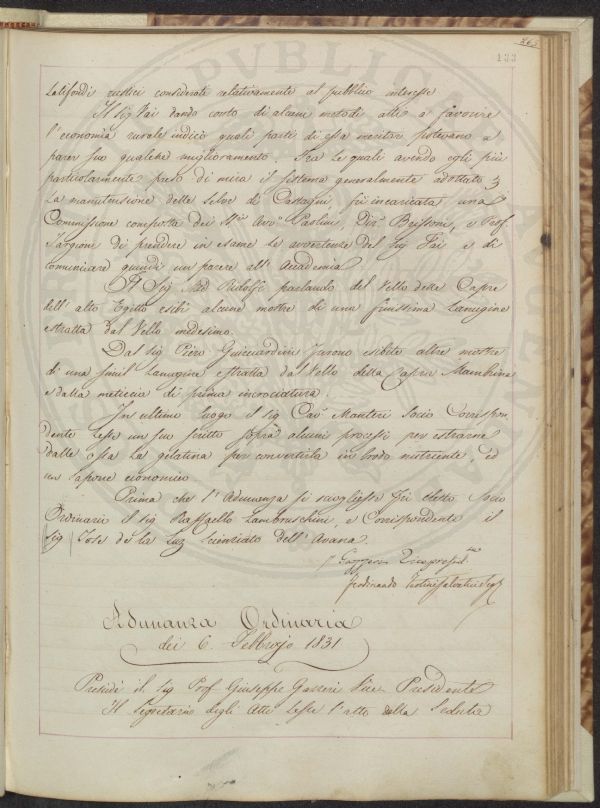 263
133
Latifondi rustici considerati relativamente al pubblico interesse
Il Sig Fai dando conto di alcuni metodi atti a favorire
l'economia rurale indicò quali parti di essa meritar potevano a
parer suo qualche miglioramento. Fra le quali avendo egli più
particolarmente preso di mira il sistema generalmente adottato p
La manutenzione delle selve di Castagni, fù incaricata una
Commissione composta dei Sri Avvo Paolini, Dir Brissoni, e Prof.
Targioni di prendere in esame le avvertenze del Sig Fai e di
comunicare quindi un parere all'Accademia
Il Sig Ridolfi parlando del Vello delle Capre
dell'alto Egitto esibì alcune mostre di una finissima Lanugine
estratta dal Vello medesimo.
Dal Sig Piero Guicciardini furono esibite altre mostre
di una simil Lanugine estratta dal Vello della Capra Mambrina
e dalla meticcia di prima incrociatura.
In ultimo luogo il Sig Cav Manteri Socio Corrispon
dente Lesse un suo scritto sopra alcuni processi per estrarre
dalle ossa La gelatina per convertirla in brodo nutriente, ed
un Sapone economico
Prima che l'Adunanza si sciogliesse fù eletto Socio
Ordinario il Sig Raffaello Lambruschini, e Corrispondente il
Sig Jose de la Luz scienziato dell'Avana.
G Gazzeri Vicepresid.
Ferdinando Tartini Salvatici Seg
Adunanza Ordinaria
dei 6 Febbrajo 1831
Presidè il Sig Prof Giuseppe Gazzeri Vice Presidente
Il Segretario degli Atti Lesse l'atto della Seduta